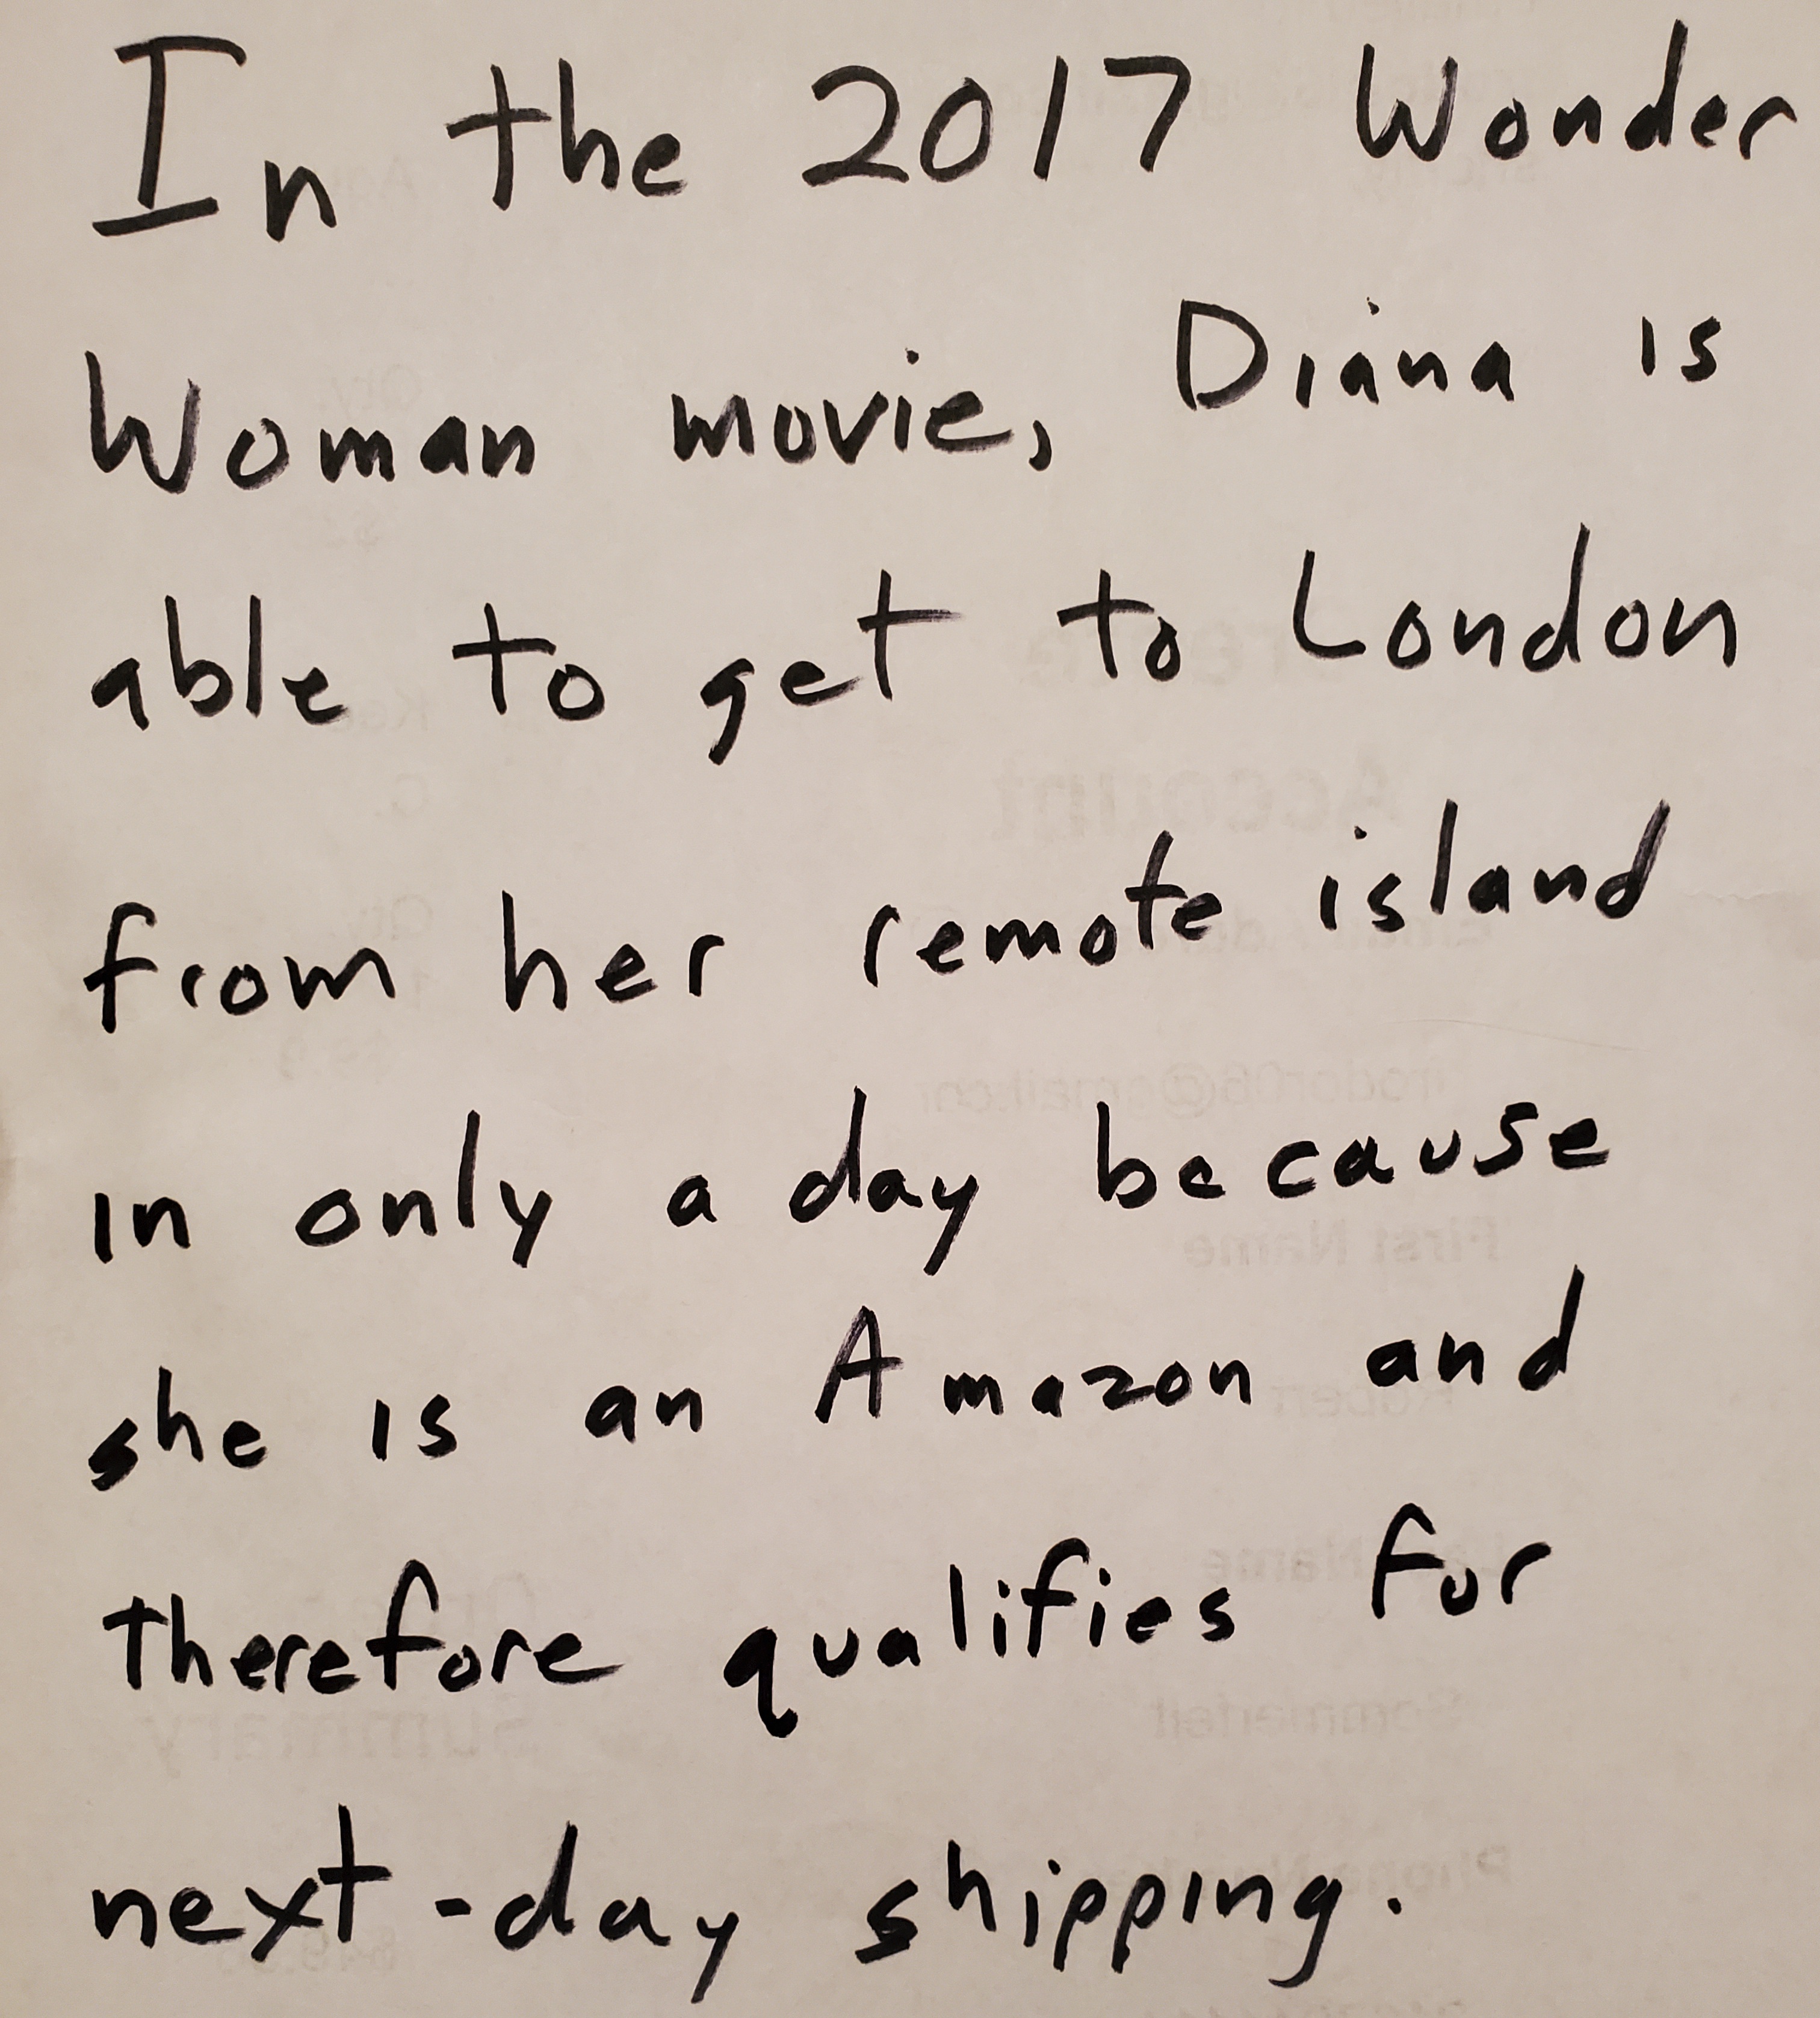 In the 2017 Wonder
Woman movie, Diana is
able to get to London
from her remote island
in only a day because
she is an Amazon and
therefore qualifies for
next-day shipping.